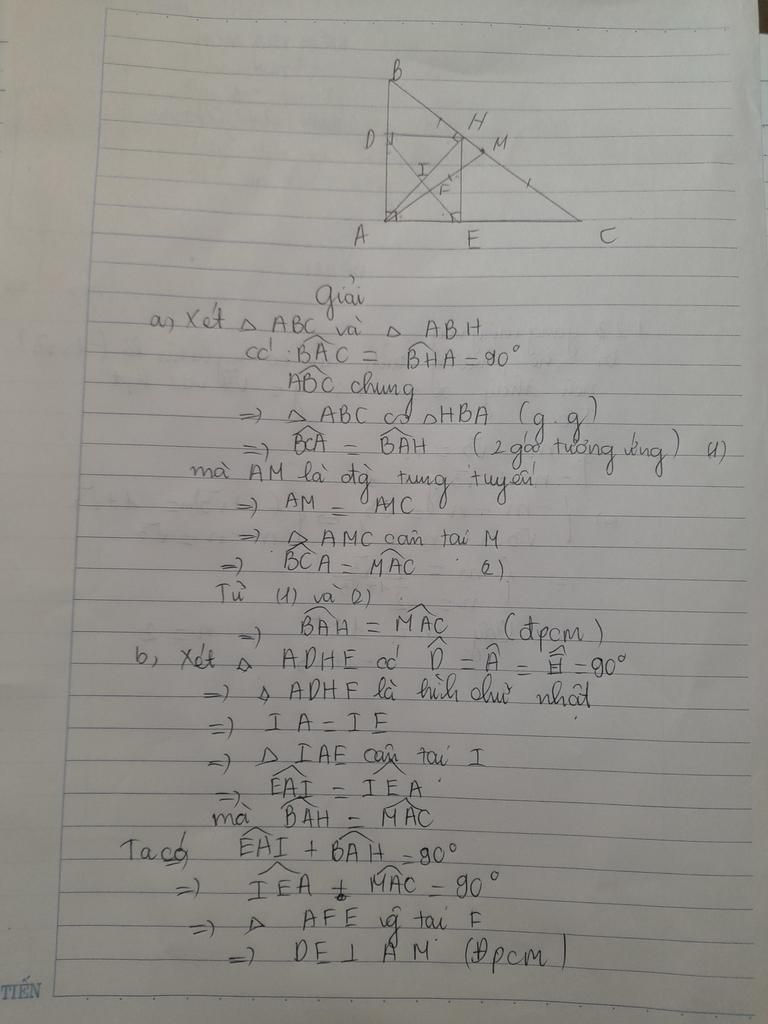 B
H
D
M
I
F
A
E
C
Giải
a, Xét △ ABC và △ ABH
có: BAC = BHA = 90°
ABC chung
=> △ ABC ∽ △HBA (g.g)
=> BCA = BAH (2 góc tương ứng) (1)
mà AM là đg trung tuyến
=> AM = MC
=> △ AMC cân tại M
=> BCA = MAC (2)
Từ (1) và (2)
=> BAH = MAC (đpcm)
b, Xét △ ADHE có D = A = E = 90°
=> △ ADHF là hình chữ nhật
=> IA = IE
=> △ IAE cân tại I
=> EAI = IEA
mà BAH = MAC
Ta có EAI + BAH = 90°
=> IEA + MAC = 90°
=> △ AFE vg tại F
=> DE ⊥ AM (Đpcm)
TIẾN